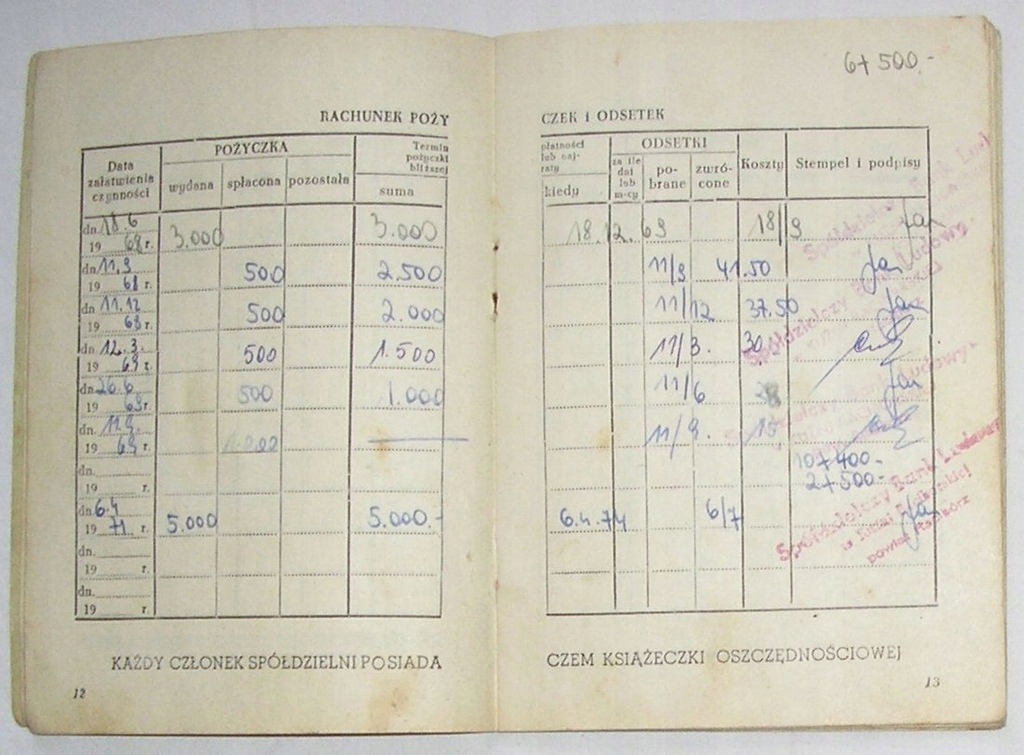 6+500.-
RACHUNEK POŻY
CZEK i ODSETEK
Data załatwienia czynności
POŻYCZKA
wydana spłacona pozostała
Termin pożyczki bliższej
suma
płatności lub naj- raty
kiedy
ODSETKI
za ile dni lub m-cy
po- brane
zwró- cone
Koszty
Stempel i podpisy
dn. 18.6 3.000 3.000 18.12.69 18/9
19 68 r.
dn. 11.9 500 2.500 11/9 41.50
19 68 r.
dn. 11.12 500 2.000 11/12 37.50
19 68 r.
dn. 12.3. 500 1.500 11/3. 30
19 69 r.
dn. 26.6 500 1.000 11/6
19 69 r.
dn. 11.9. 11/9. 15
19 69 r.
dn. 10+400-
19 r. 2+500-
dn. 6.4 5.000 5.000.- 6.4.74 6/7
19 71 r.
dn.
19 r.
dn.
19 r.
Spółdzielczy Bank Ludowy
powiat Racibórz
KAŻDY CZŁONEK SPÓŁDZIELNI POSIADA
CZEM KSIĄŻECZKI OSZCZĘDNOŚCIOWEJ
12
13